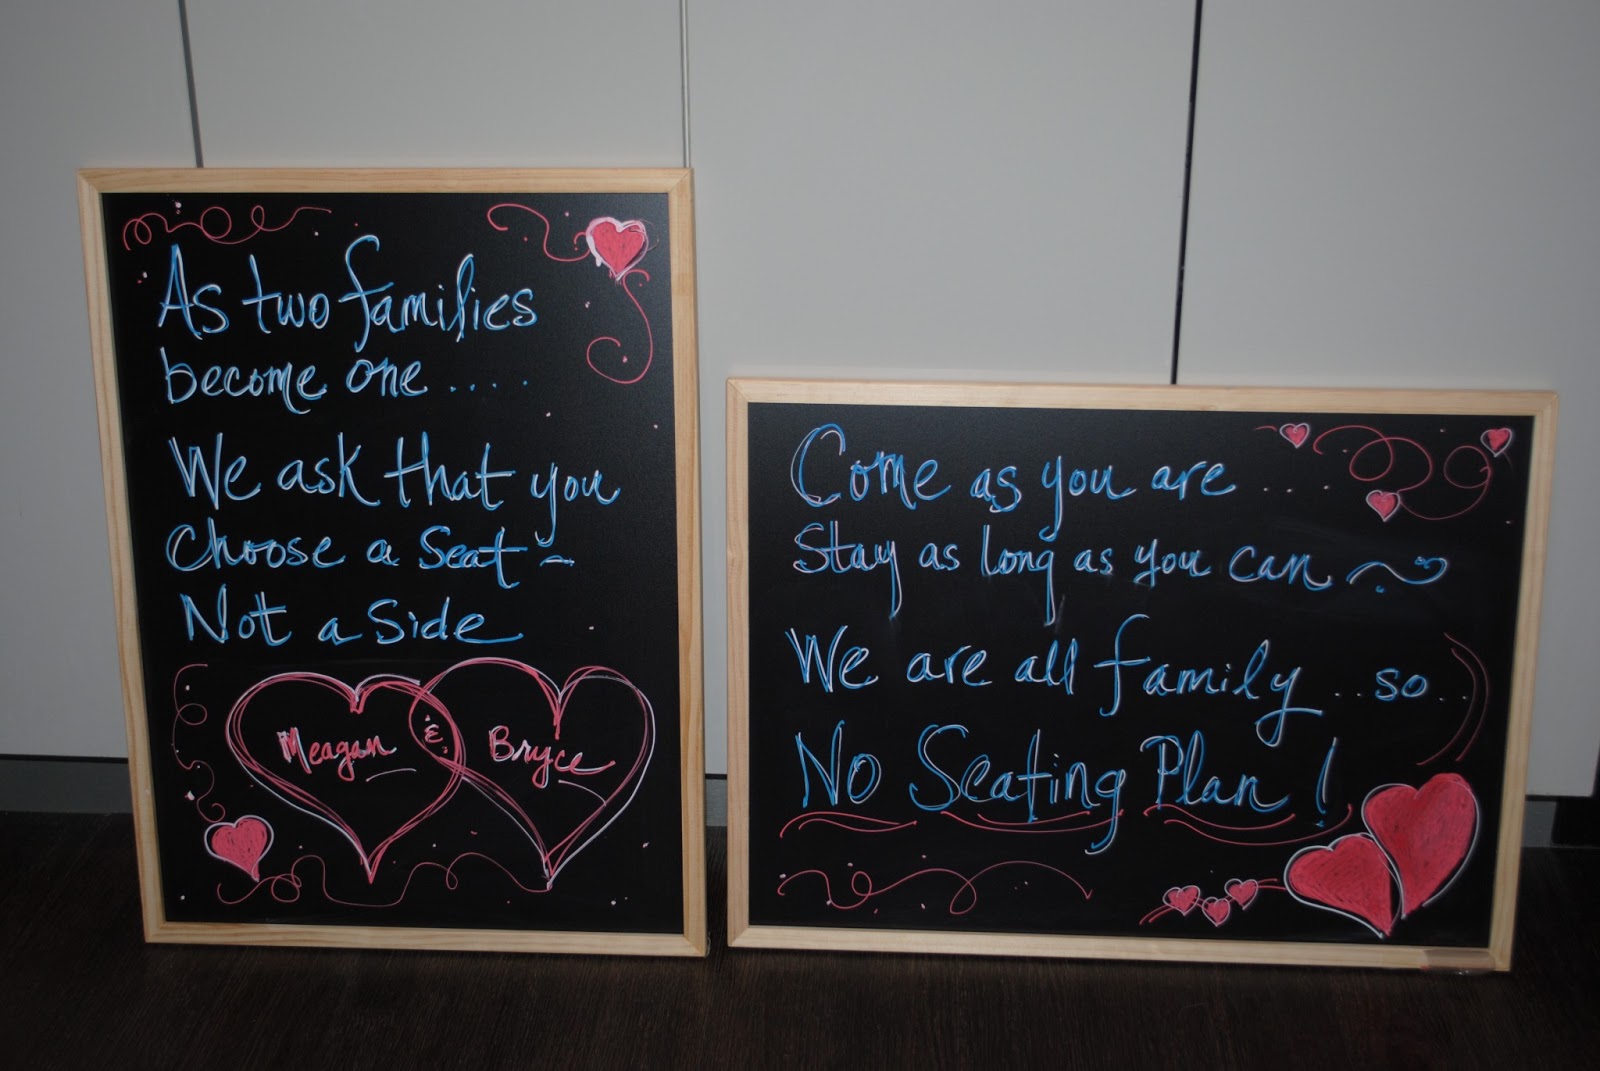 As two families
become one....
We ask that you
Choose a Seat ~
Not a Side
Meagan & Bryce
Come as you are ....
Stay as long as you can ~
We are all family ..so..
No Seating Plan!